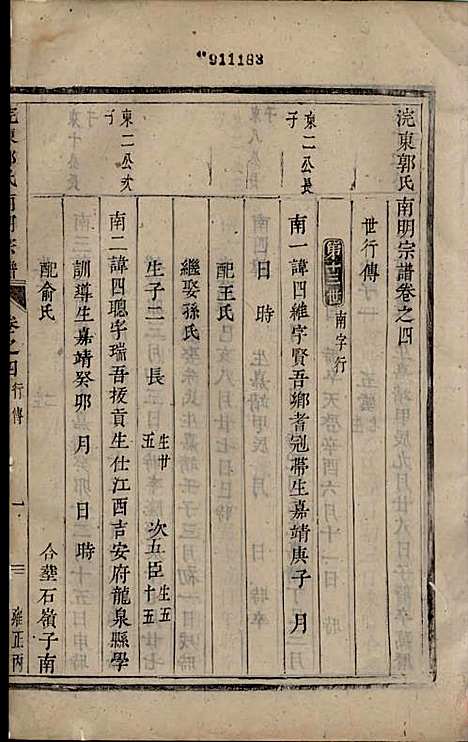 911183
浣東郭氏南明宗譜卷之四
世行傳
第十三世 南字行
東二公長子
南一諱四維字賢吾鄉耆冠帶生嘉靖庚子 月
日 時
配王氏
繼娶孫氏
生子二 長 生廿五 次五臣 生五十五
東二公次子
南二諱四聰字瑞吾拔貢生仕江西吉安府龍泉縣學
訓導生嘉靖癸卯 月 日 時
配俞氏 合塟石嶺子南
浣東郭氏南明宗譜 卷之四 行傳 一 雍正丙